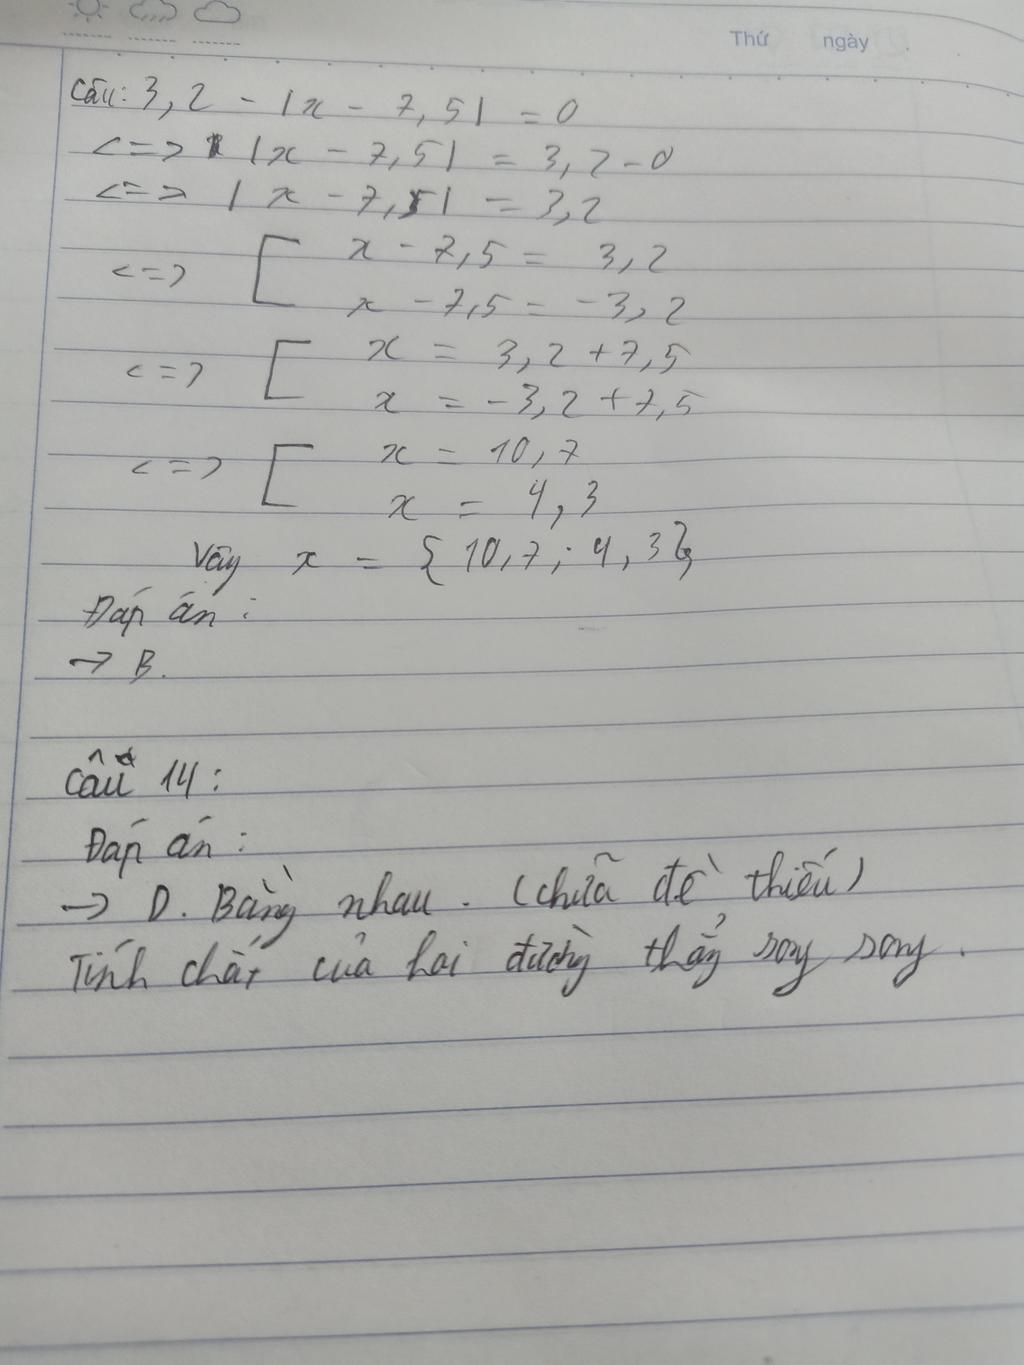 Thứ ngày
Câu: 3,2 - |x - 7,5| = 0
<=> |x - 7,5| = 3,2 - 0
<=> |x - 7,5| = 3,2
<=> [ x - 7,5 = 3,2
x - 7,5 = -3,2
<=> [ x = 3,2 + 7,5
x = -3,2 + 7,5
<=> [ x = 10,7
x = 4,3
Vậy x = {10,7; 4,3}
Đáp án:
→ B.
Câu 14:
Đáp án:
→ D. Bằng nhau. (chữa đề thiếu)
Tính chất của hai đường thẳng song song.